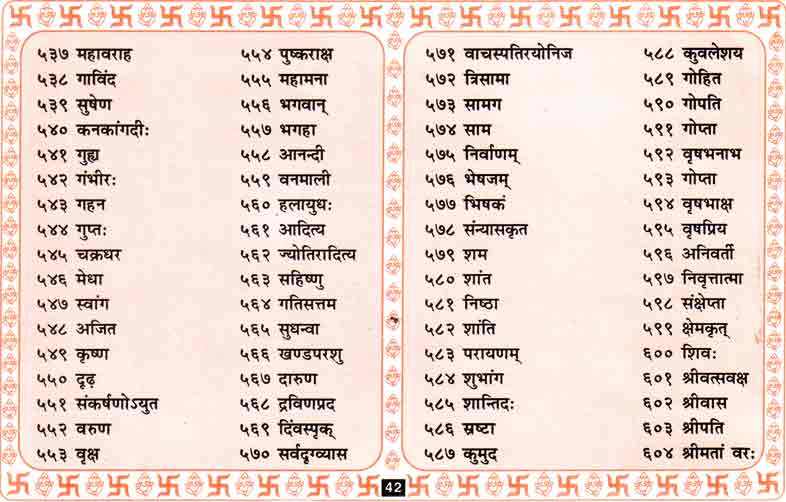 ५३७ महावराह
५३८ गाविंद
५३९ सुषेण
५४० कनकांगदीः
५४१ गुह्य
५४२ गंभीरः
५४३ गहन
५४४ गुप्तः
५४५ चक्रधर
५४६ मेधा
५४७ स्वांग
५४८ अजित
५४९ कृष्ण
५५० दृढ़
५५१ संकर्षणोऽयुत
५५२ वरुण
५५३ वृक्ष
५५४ पुष्कराक्ष
५५५ महामना
५५६ भगवान्
५५७ भगहा
५५८ आनन्दी
५५९ वनमाली
५६० हलायुधः
५६१ आदित्य
५६२ ज्योतिरादित्य
५६३ सहिष्णु
५६४ गतिसत्तम
५६५ सुधन्वा
५६६ खण्डपरशु
५६७ दारुण
५६८ द्रविणप्रद
५६९ दिंवस्पृक्
५७० सर्वदृग्व्यास
५७१ वाचस्पतिरयोनिज
५७२ त्रिसामा
५७३ सामग
५७४ साम
५७५ निर्वाणम्
५७६ भेषजम्
५७७ भिषकं
५७८ संन्यासकृत
५७९ शम
५८० शांत
५८१ निष्ठा
५८२ शांति
५८३ परायणम्
५८४ शुभांग
५८५ शान्तिदः
५८६ स्रष्टा
५८७ कुमुद
५८८ कुवलेशय
५८९ गोहित
५९० गोपति
५९१ गोप्ता
५९२ वृषभनाभ
५९३ गोप्ता
५९४ वृषभाक्ष
५९५ वृषप्रिय
५९६ अनिवर्ती
५९७ निवृत्तात्मा
५९८ संक्षेप्ता
५९९ क्षेमकृत्
६०० शिवः
६०१ श्रीवत्सवक्ष
६०२ श्रीवास
६०३ श्रीपति
६०४ श्रीमतां वरः
42